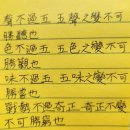 声不過五 五聲之變不可
勝聽也
色不過五 五色之變不可
勝觀也
味不過五 五味之變不可
勝嘗也
戰勢不過奇正 奇正之變不
可勝窮也